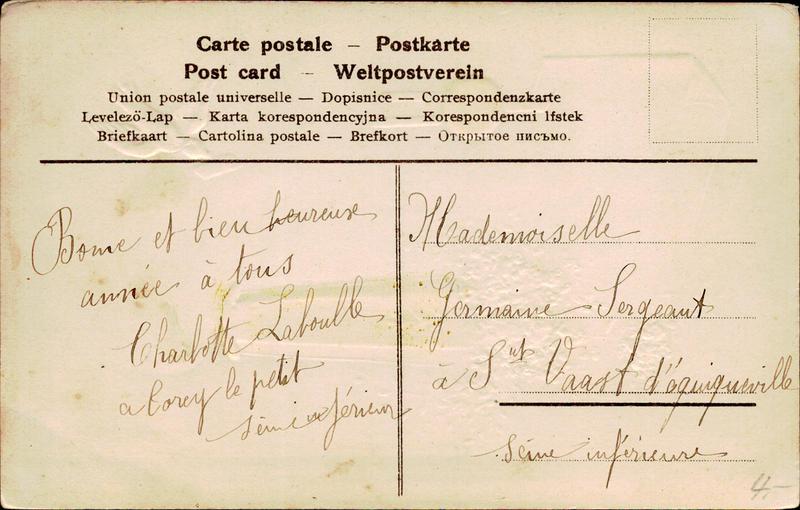 Carte postale – Postkarte
Post card – Weltpostverein
Union postale universelle — Dopisnice — Correspondenzkarte
Levelező-Lap — Karta korespondencyjna — Korespondencni lfstek
Briefkaart — Cartolina postale — Brefkort — Открытое письмо.
Bonne et bien heureuse
année à tous
Charlotte Laboulle
a Torcy le petit
séine inférieur
Mademoiselle
Germaine Sergeant
à St Vaast d'équiqueville
séine inférieure
4.-